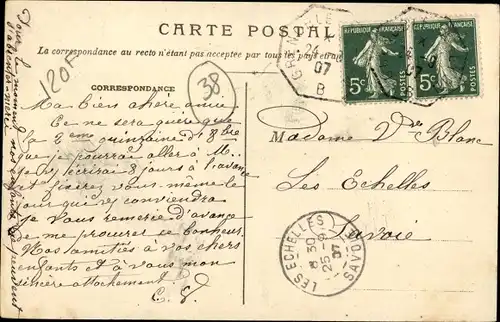 CARTE POSTALE
La correspondance au recto n'étant pas acceptée par tous les pays étran
CORRESPONDANCE
120F
38
Ma bien chère amie
Ce ne sera guère que
la 2ème quinzaine de 8bre
que je pourrai aller à M.
Je vs écrirai 8 jours à l'avance
et fixerez vous même le
jour qui vs conviendra
Je vous remercie d'avance
de me procurer ce bonheur.
Mes amitiés à vos chers
enfants et à vous mon
sincère attachement.
RÉPUBLIQUE FRANÇAISE
5c
POSTES
RÉPUBLIQUE FRANÇAISE
5c
POSTES
24
07
B
Madame Vve Blanc
Les Echelles
Savoie
LES ECHELLES
8 30
25
07
SAVOIE